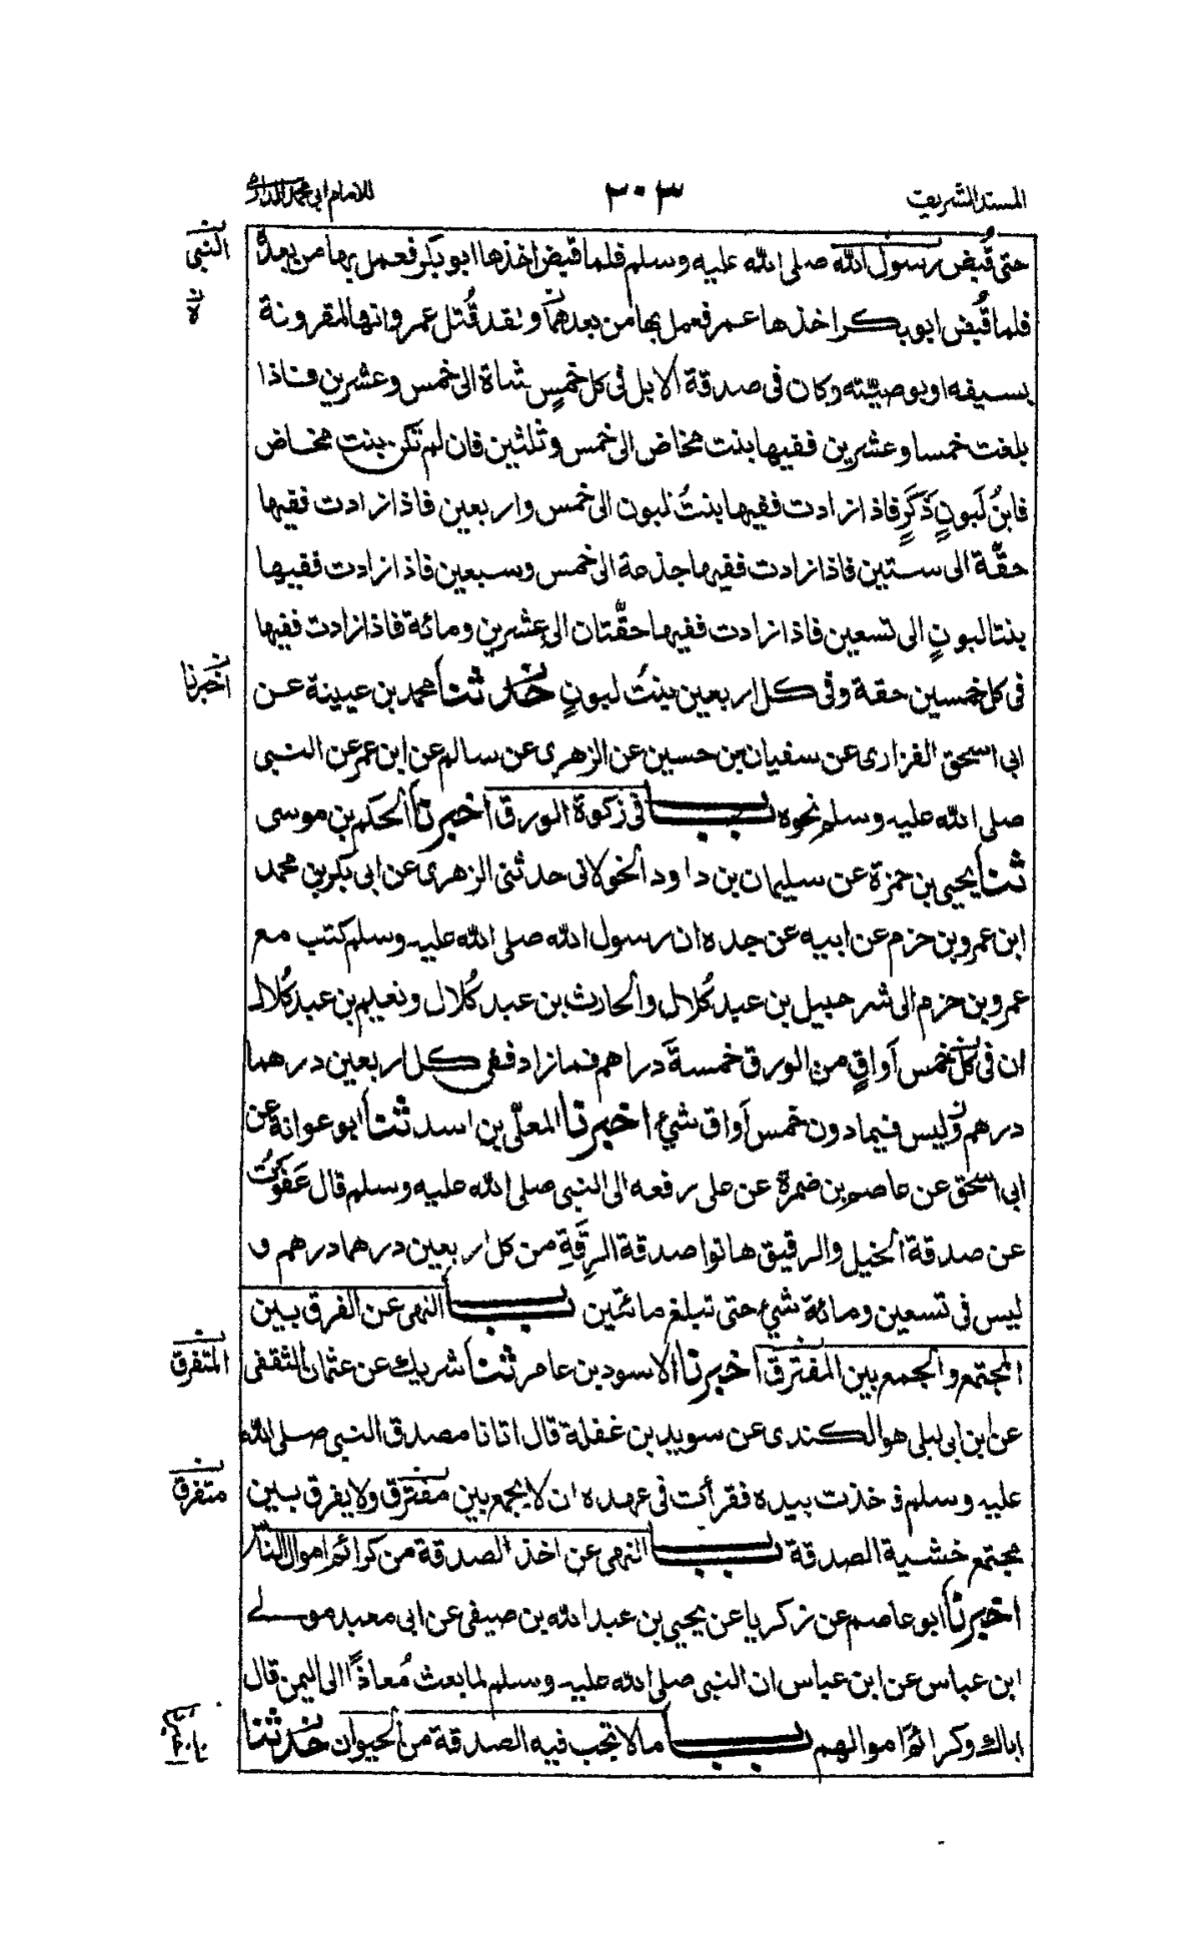 المسند الشريف
٢٠٣
للامام ابي محمد الدارمي
حتى قُبض رسول الله صلى الله عليه وسلم فلما قبض اخذها ابو بكر فعمل بها من بعده
النبي
فلما قُبض ابو بكر اخذها عمر فعمل بها من بعدهما ولقد قُتل عمر وانها لمقرونة
هٗ
بسيفه او بوصيّته وكان فى صدقة الابل فى كل خمسٍ شاة الى خمس وعشرين فاذا
بلغت خمسا وعشرين ففيها بنت مخاض الى خمس وثلثين فان لم تكن بنت مخاض
فابنُ لَبونٍ ذَكَرٍ فاذا زادت ففيها بنتُ لبون الى خمس واربعين فاذا زادت ففيها
حقّة الى ستين فاذا زادت ففيها جذعة الى خمس وسبعين فاذا زادت ففيها
بنتا لبونٍ الى تسعين فاذا زادت ففيها حقّتان الى عشرين ومائة فاذا زادت ففيها
فى كل خمسين حقة وفى كل اربعين بنتُ لبونٍ حدثنا محمد بن عيينة عن
اخبرنا
ابى اسحق الفزارى عن سفيان بن حسين عن الزهرى عن سالم عن ابن عمر عن النبى
صلى الله عليه وسلم نحوه باب فى زكوة الورق اخبرنا الحكم بن موسى
ثنا يحيى بن حمزة عن سليمان بن داود الخولانى حدثنى الزهرى عن ابى بكر بن محمد
ابن عمرو بن حزم عن ابيه عن جده ان رسول الله صلى الله عليه وسلم كتب مع
عمرو بن حزم الى شرحبيل بن عبد كُلال والحارث بن عبد كُلال ونعيم بن عبد كُلال
ان فى كل خمس اَواقٍ من الورق خمسةَ دراهم فما زاد ففى كل اربعين درهما
درهم وليس فيما دون خمس اَواق شئ اخبرنا المعلّى بن اسد ثنا ابو عوانة عن
ابى اسحق عن عاصم بن ضمرة عن على رفعه الى النبى صلى الله عليه وسلم قال عَفَوتُ
عن صدقة الخيل والرقيق هاتوا صدقة الرِقَةِ من كل اربعين درهما درهم و
ليس فى تسعين ومائة شئ حتى تبلغ مائتين باب النهى عن الفرق بين
المجتمع والجمع بين المفترق اخبرنا الاسود بن عامر ثنا شريك عن عثمان الثقفى
المتفرق
عن ابن ابى ليلى هو الكندى عن سويد بن غفلة قال اتانا مصدق النبى صلى الله
عليه وسلم فاخذت بيده فقرأت فى عهده ان لا يجمع بين مفترق ولا يفرق بين
متفرق
مجتمع خشية الصدقة باب النهى عن اخذ الصدقة من كرائم اموال الناس
اخبرنا ابو عاصم عن زكريا عن يحيى بن عبد الله بن صيفى عن ابى معبد مولى
ابن عباس عن ابن عباس ان النبى صلى الله عليه وسلم لما بعث مُعاذًا الى اليمن قال
اياك وكرائم اموالهم باب ما لا تجب فيه الصدقة من الحيوان حدثنا